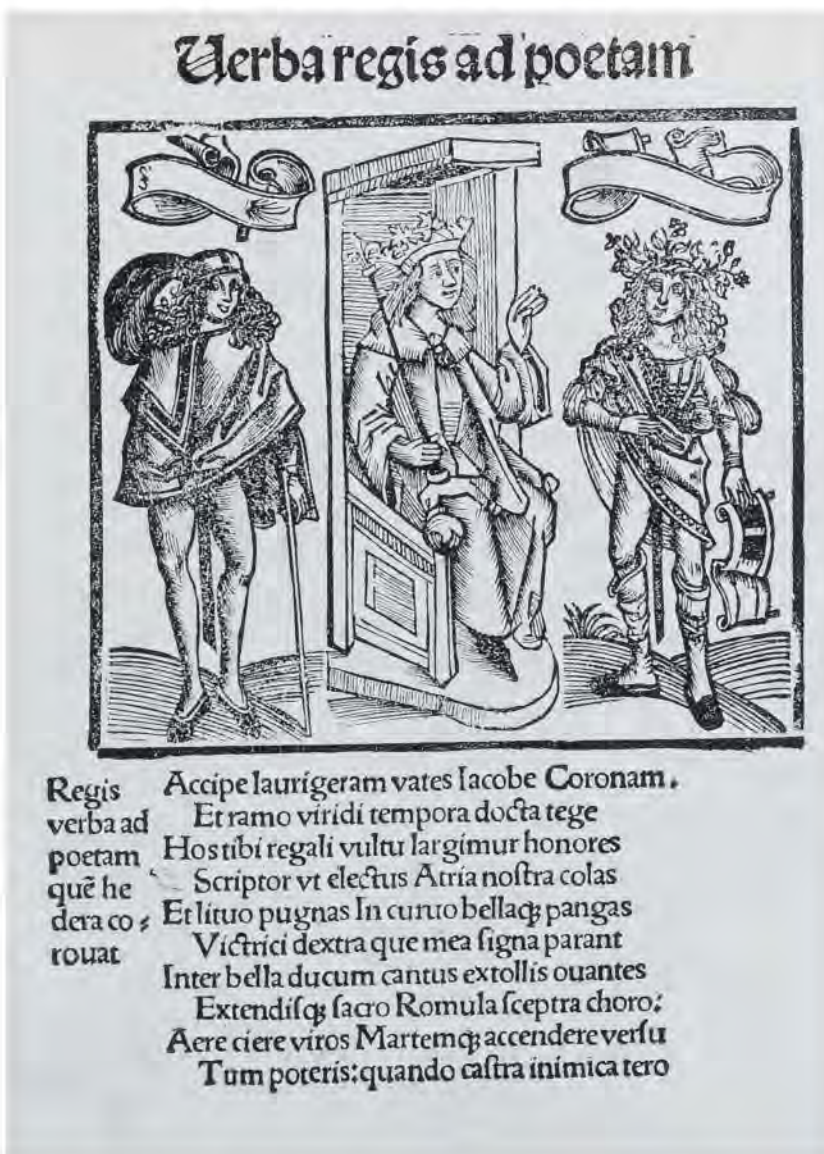 Uerba regis ad poetam
Regis
verba ad
poetam
quē he
dera co⸗
rouat
Accipe laurigeram vates Iacobe Coronam.
Et ramo viridi tempora docta tege
Hos tibi regali vultu largimur honores
Scriptor vt electus Atria noſtra colas
Et lituo pugnas In curuo bellaqꝫ pangas
Victrici dextra que mea ſigna parant
Inter bella ducum cantus extollis ouantes
Extendiſqꝫ ſacro Romula ſceptra choro:
Aere ciere viros Martemqꝫ accendere verſu
Tum poteris: quando caſtra inimica tero